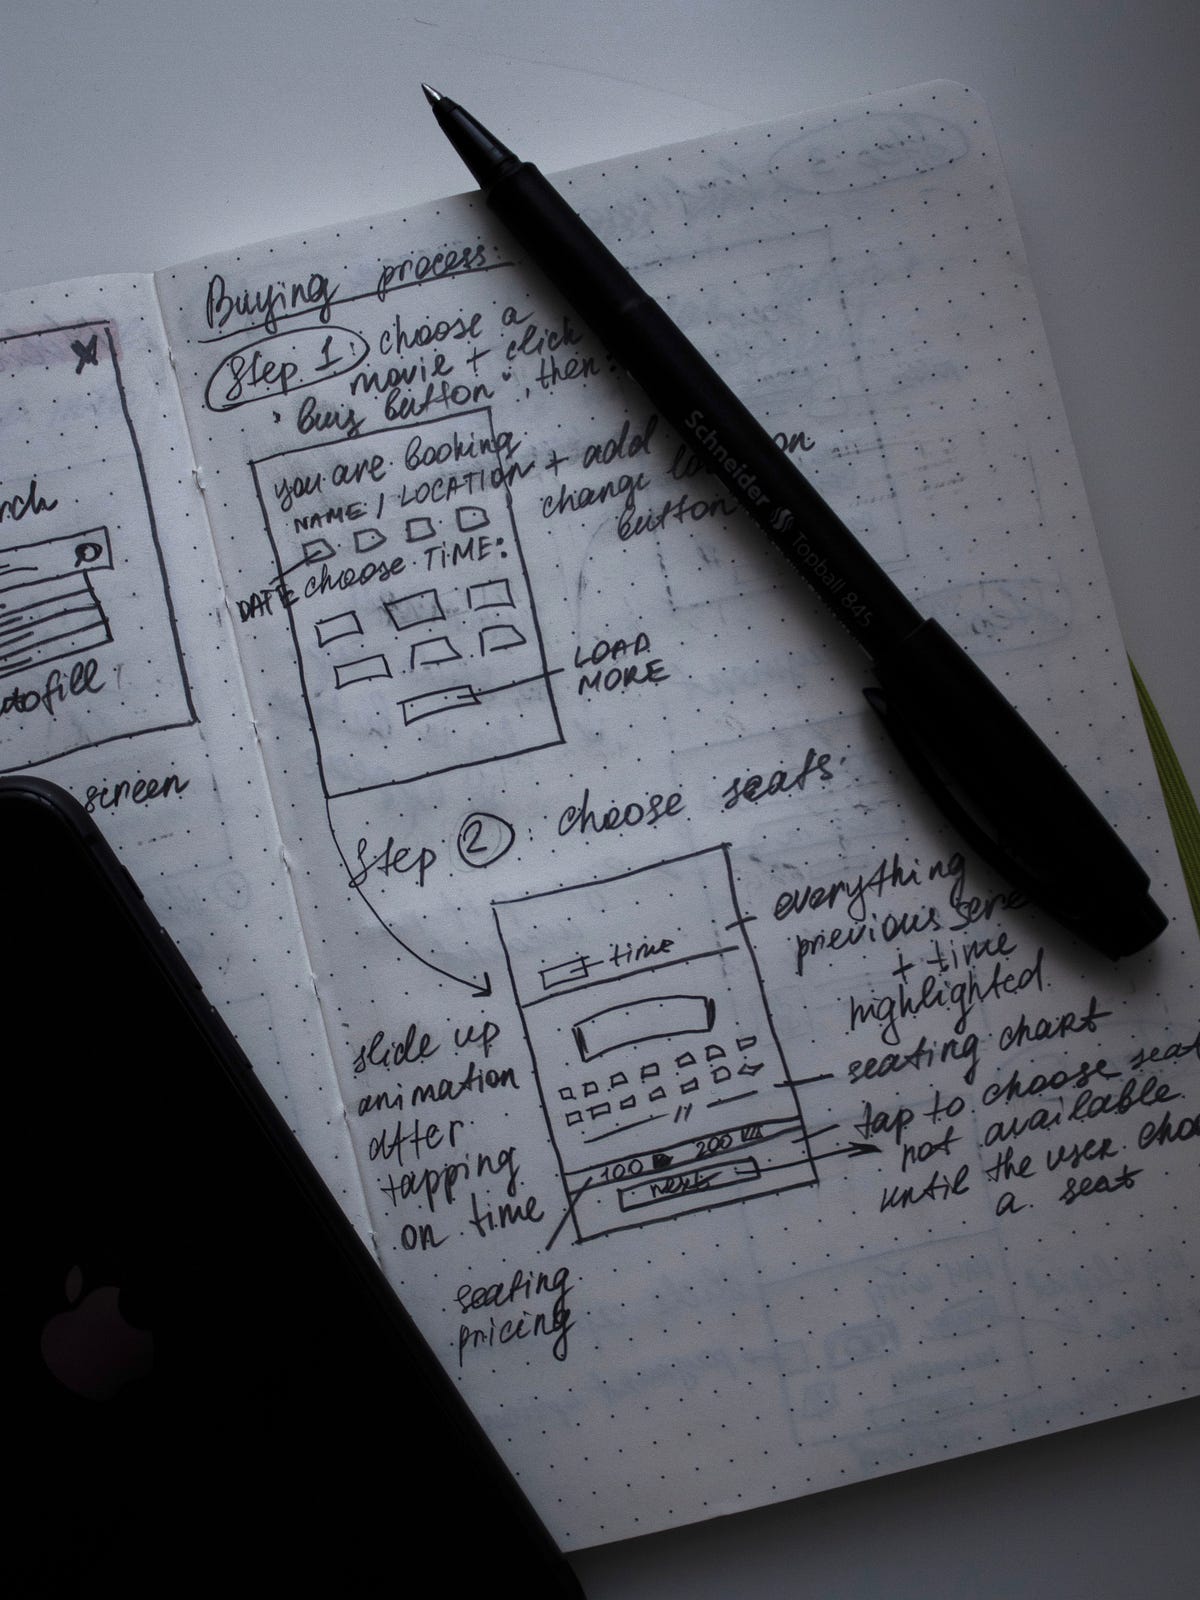 Buying process
Step 1: choose a
movie + click
"buy button", then:
you are booking
NAME / LOCATION
+ add
change
button
DATE
choose TIME:
LOAD
MORE
screen
Step 2: choose seats.
time
everything
previous
+ time
highlighted
seating chart
tap to choose
not available
until the user
a seat
100 200
next
slide up
animation
after
tapping
on time
seating
pricing
Schneider Topball 845